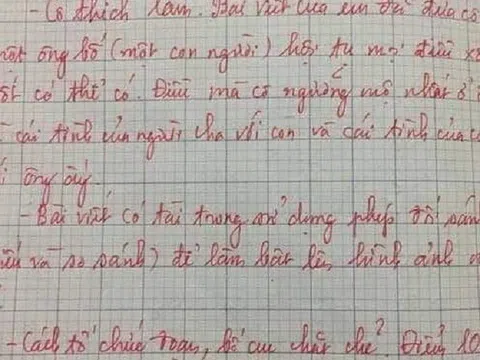 - Cô thích lắm. Bài viết của em đã đưa cô
một ông bố (một con người) hội tụ mọi điều x
ất có thể có. Điều mà cô ngưỡng mộ nhất ở
cái tình của người cha với con và cái tình của c
ông ấy.
- Bài viết có tài trong sử dụng phép đối sán
và so sánh) để làm bật lên hình ảnh
- Cách tổ chức đoạn, bố cục chặt chẽ. Điểm 10